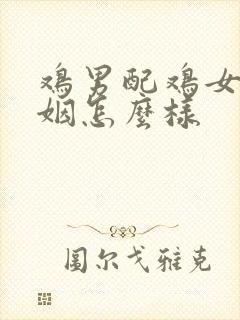 鸡男配鸡女
姻怎麼樣
圖尔戈雅克